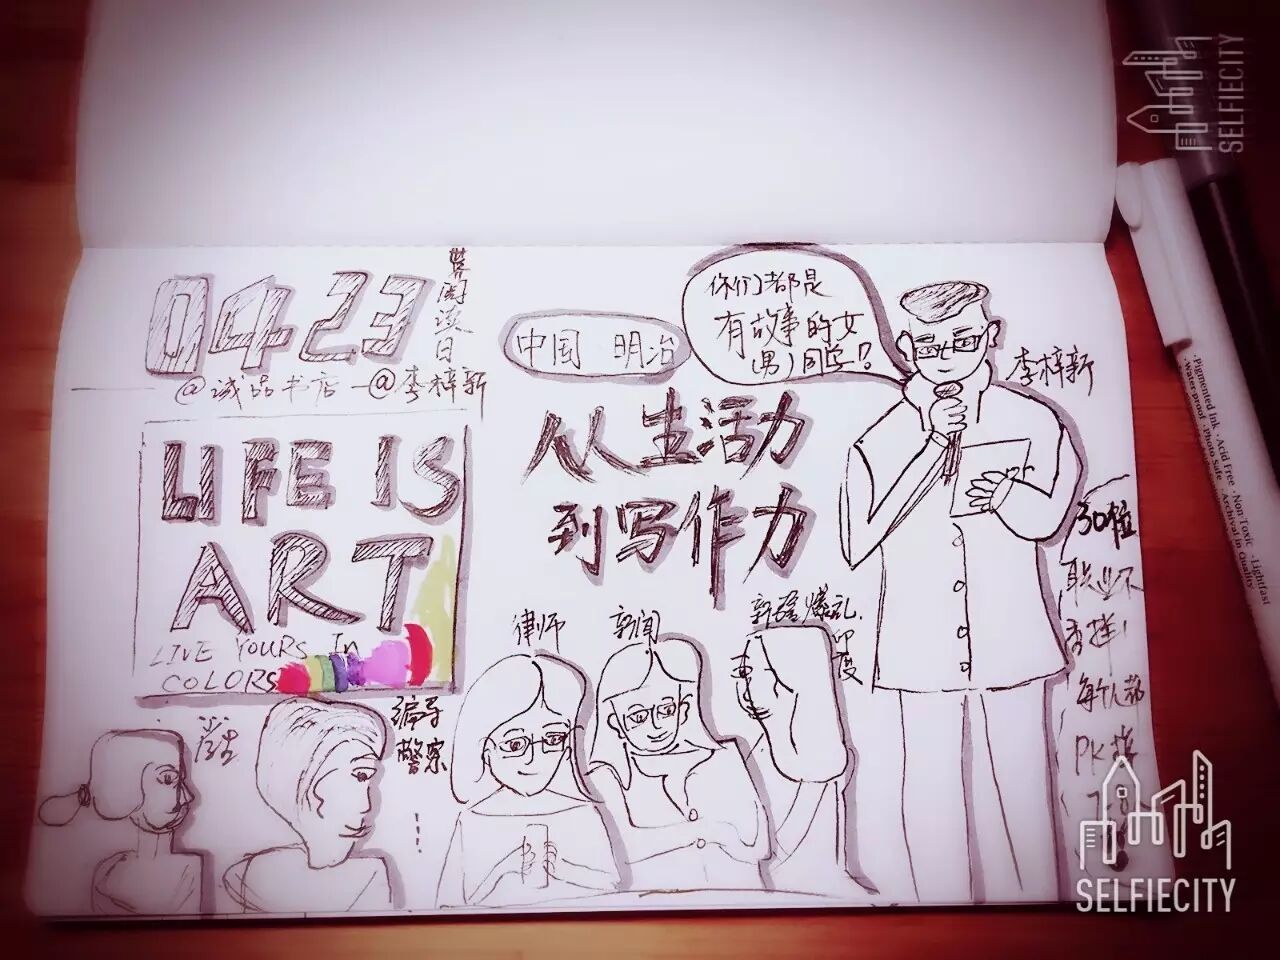 0423
世界阅读日
@诚品书店—@李梓新
LIFE IS
ART
LIVE YOURS In
COLORS
中国 明治
你们都是
有故事的女
(男)同学?
李梓新
从生活力
到写作力
30位
职业不
一样!
每个人都
PK掉
律师
新闻
印度
编导
警察
SELFIECITY
SELFIECITY
·Pigmented Ink ·Acid Free ·Non Toxic ·Lightfast
·Water-proof ·Photo Safe ·Archival in Quality